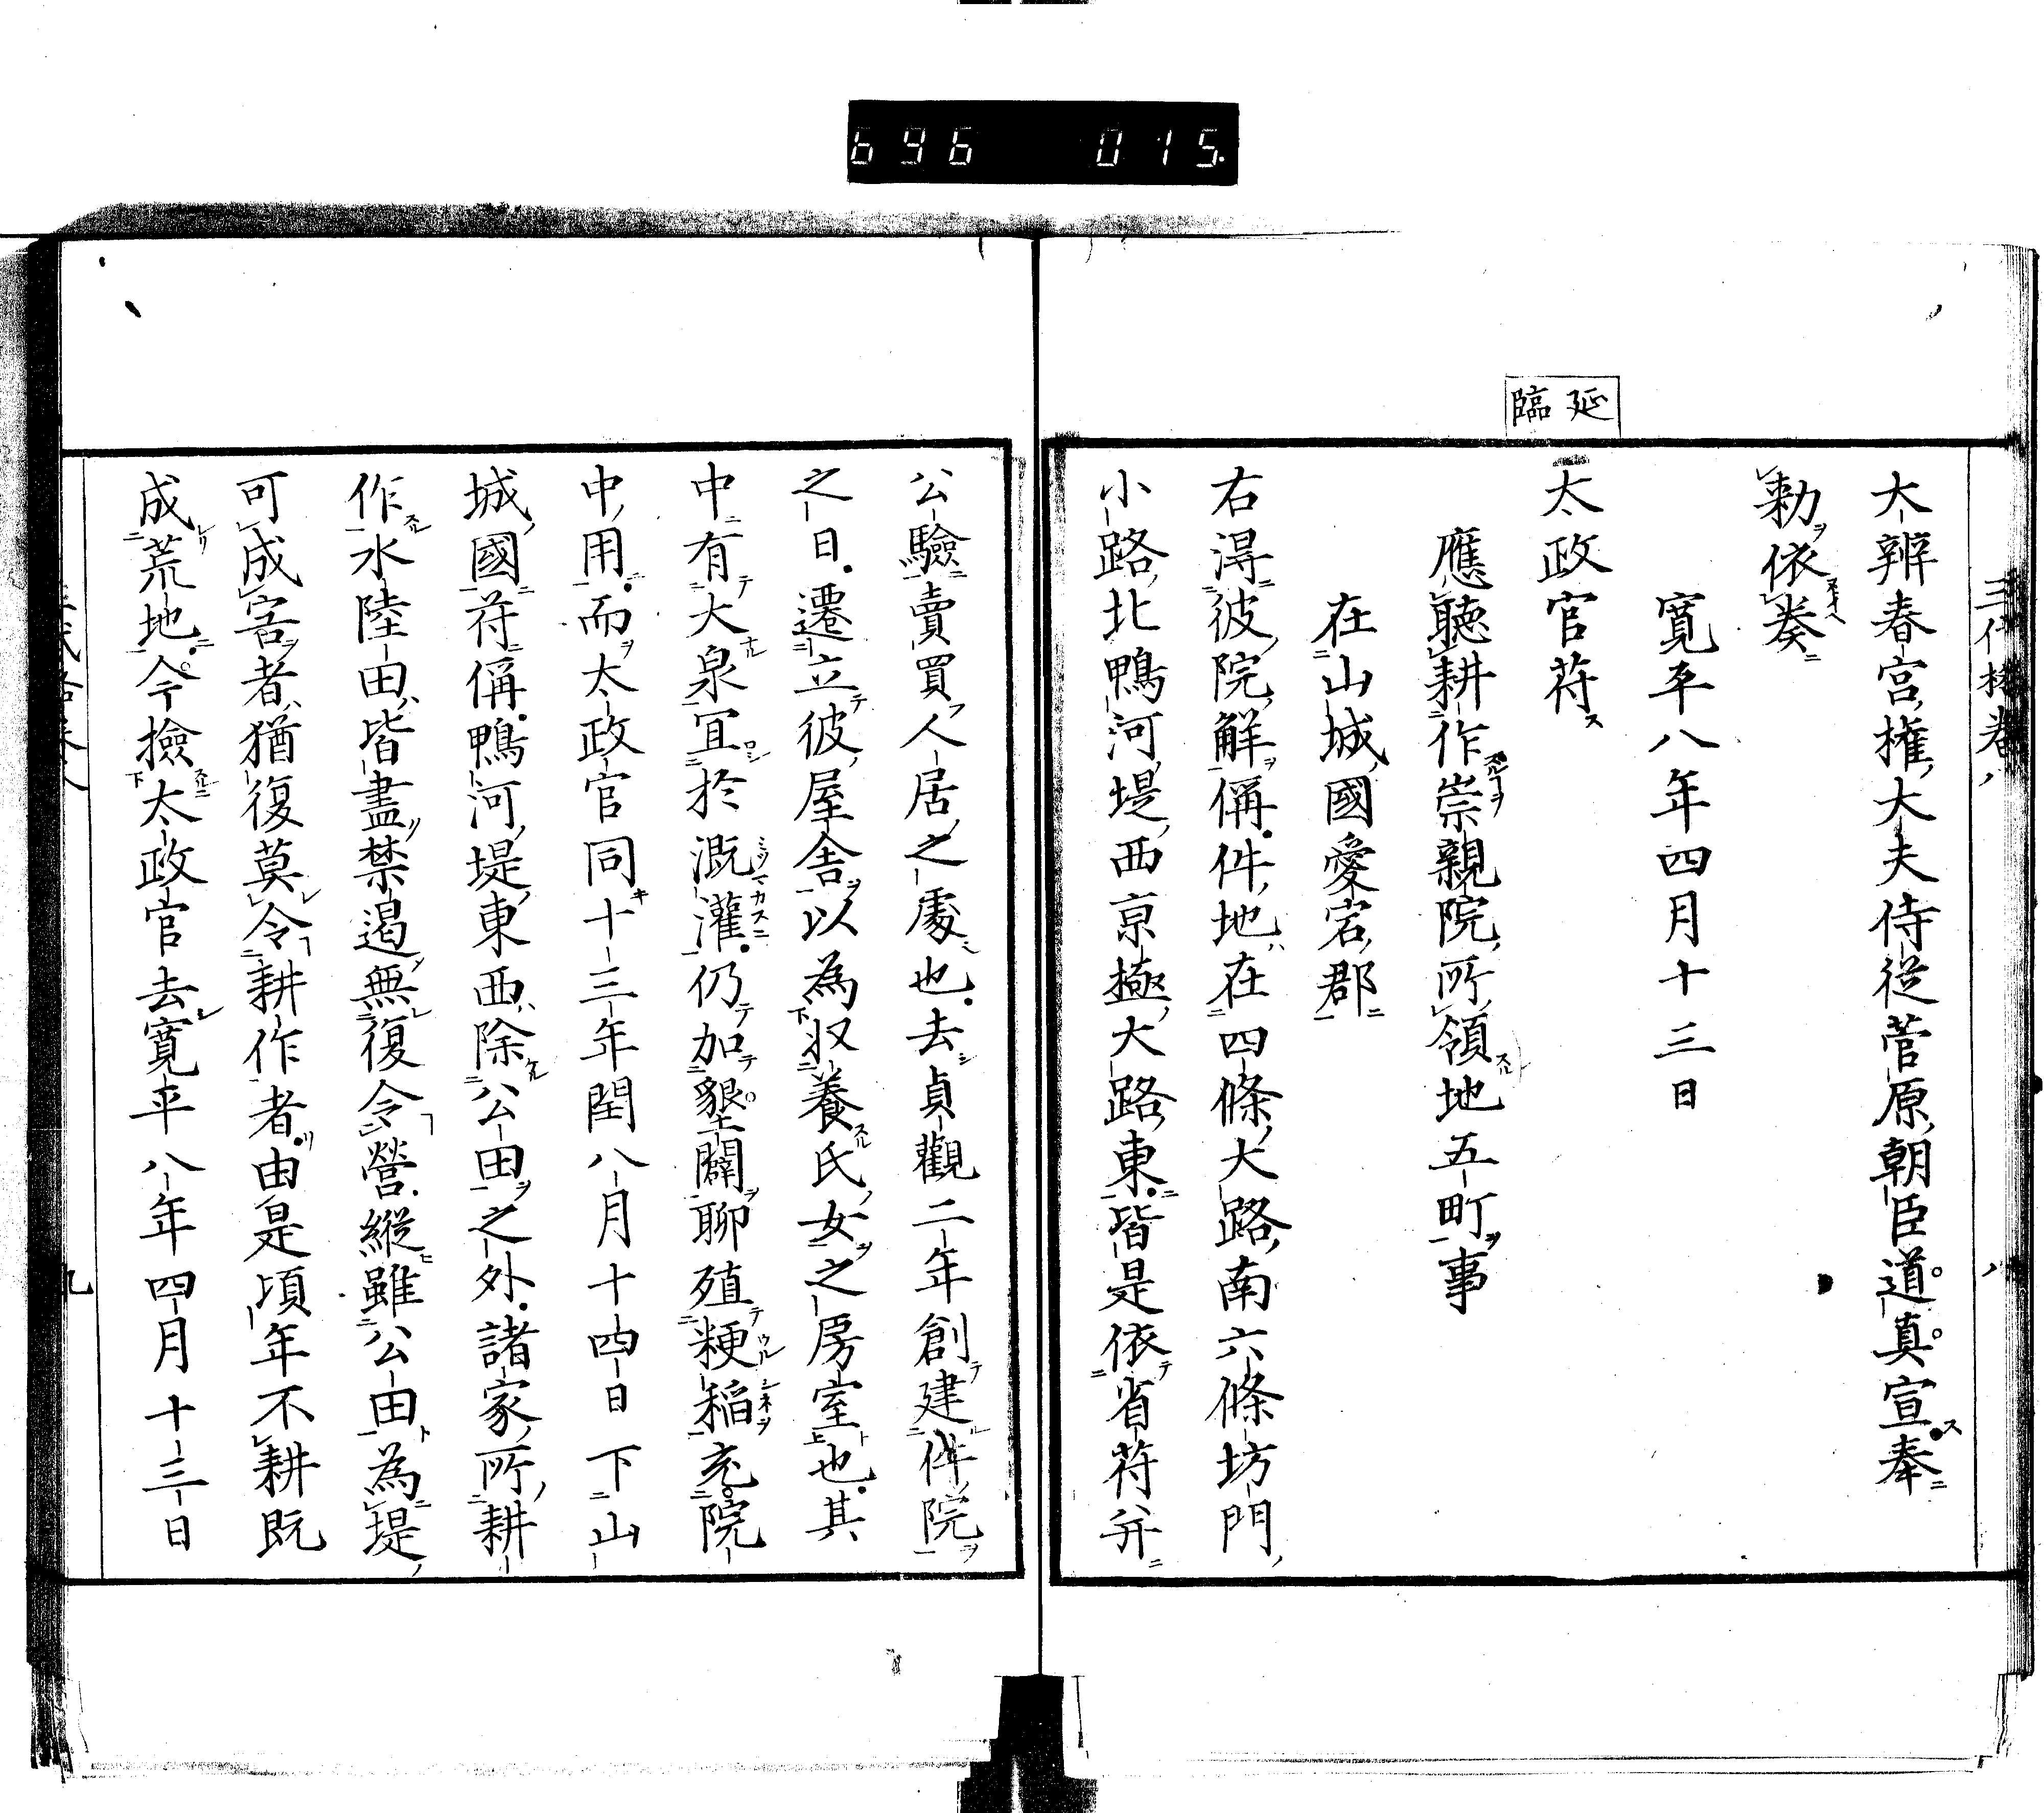 696 015
延臨
大辨春宮權大夫侍從菅原朝臣道真宣奉
勅依奏
寛平八年四月十三日
太政官符
應聽耕作崇親院所領地五町事
在山城國愛宕郡
右得彼院解偁件地在四條大路南六條坊門
小路北鴨河堤西京極大路東皆是依省符并
公驗賣買人居之處也去貞觀二年創建件院
之日遷立彼屋舍以為収養氏女之房室也其
中有大泉宜於漑灌仍加墾闢聊殖粳稲充院
中用而太政官同十三年閏八月十四日下山
城國符偁鴨河堤東西除公田之外諸家所耕
作水陸田皆盡禁遏無復令營縱雖公田為堤
可成害者猶復莫令耕作者由是頃年不耕既
成荒地今撿太政官去寛平八年四月十三日